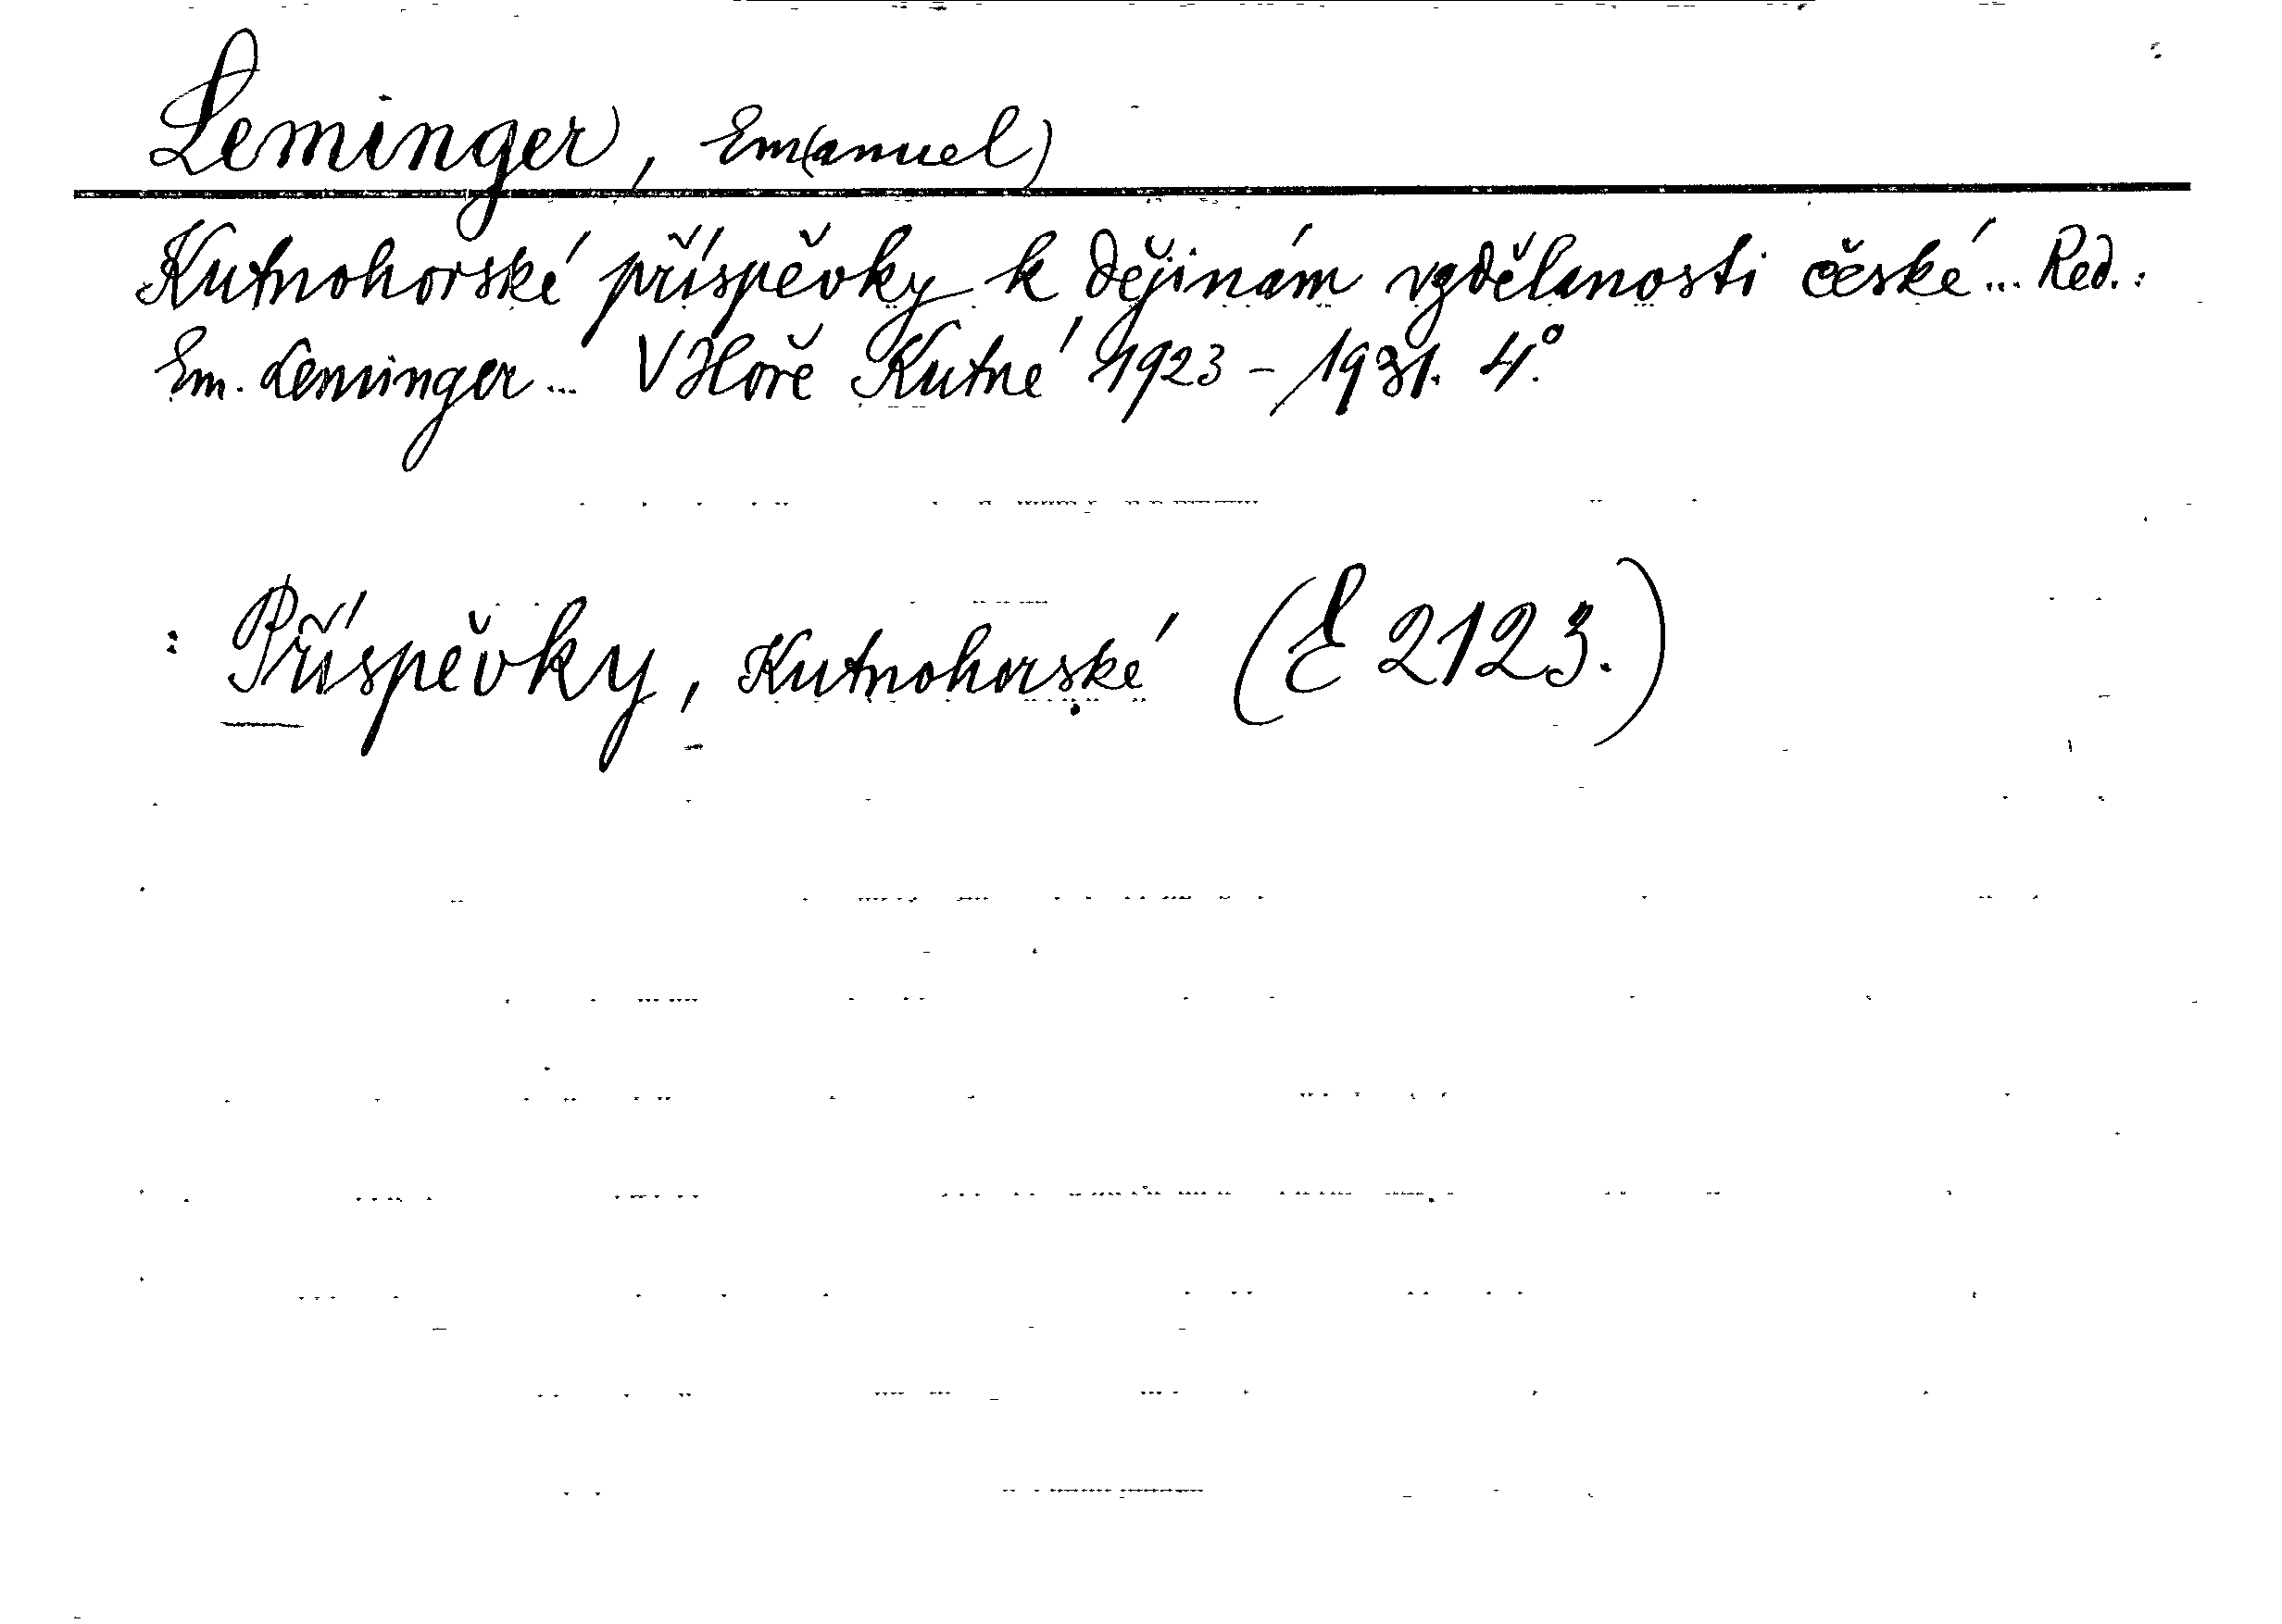 Leminger, Em(anuel)
Kutnohorské příspěvky k dějinám vzdělanosti české... Red.:
Em. Leminger... V Hoře Kutné 1923 - 1931. 4°.
: Příspěvky, Kutnohorské (E 2123.)